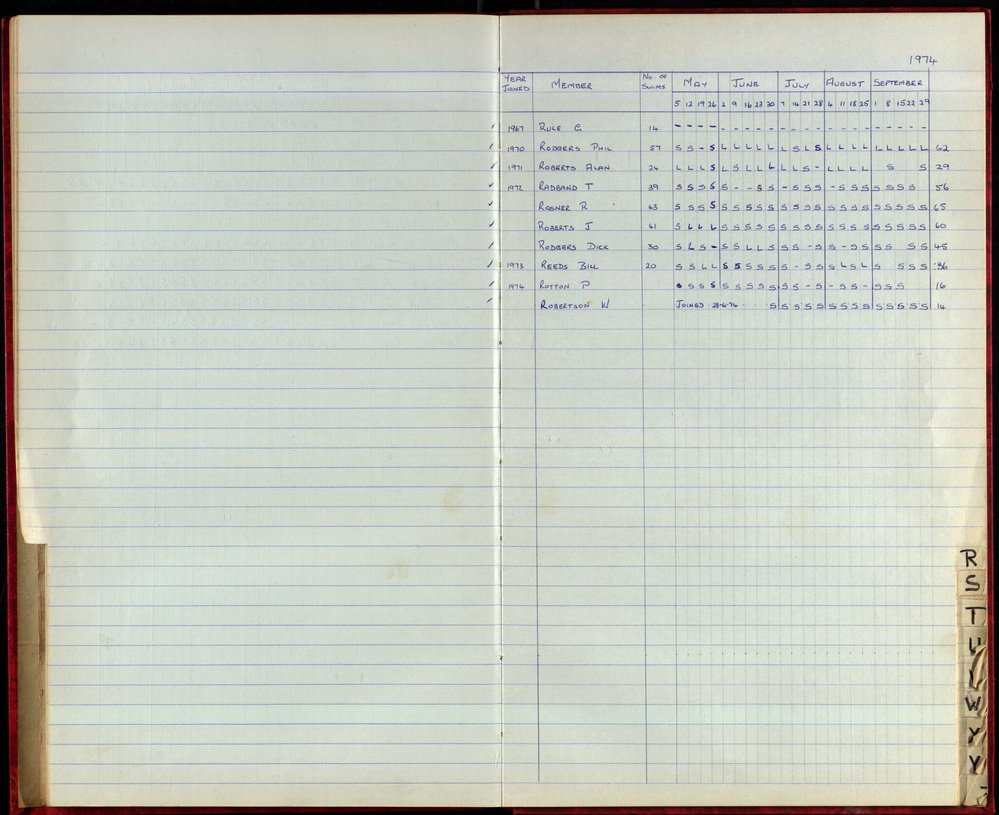 1974
YEAR JOINED MEMBER No OF SWIMS MAY JUNE JULY AUGUST SEPTEMBER
5 12 19 26 2 9 16 23 30 7 14 21 28 4 11 18 25 1 8 15 22 29
✓ 1967 RULE G 14 - - - - - - - - - - - - - - - - - - - - - -
✓ 1970 RODGERS PHIL 57 S S - S L L L L L L S L S L L L L L L L L L 62
✓ 1971 ROBERTS ALAN 24 L L L S L S L L L L L S - L L L L S S 29
✓ 1972 RADBAND T 39 S S S S S - - S S - S S S - S S S S S S S 56
✓ ROSNER R 43 S S S S S S S S S S S S S S S S S S S S S S 65
✓ ROBERTS J 41 S L L L S S S S S S S S S S S S S S S S S S 60
✓ RODGERS DICK 30 S L S - S S L L S S S - S S - S S S S S S 45
✓ 1973 REEDS BILL 20 S S L L S S S S S S - S S S L S L S S S S 36
✓ 1974 ROTTON P S S S S S S S S S S S - S - S S - S S S 16
✓ ROBERTSON W JOINED 23-6-74 S S S S S S S S S S S S S S 14
R
S
T
U
W
Y
Y